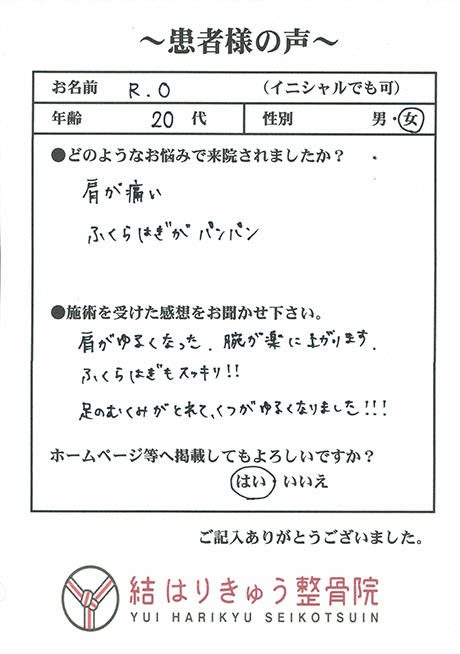 ～患者様の声～
お名前 R.O （イニシャルでも可）
年齢 20 代 性別 男・女
●どのようなお悩みで来院されましたか？
肩が痛い
ふくらはぎがパンパン
●施術を受けた感想をお聞かせ下さい。
肩がゆるくなった．腕が楽に上がります．
ふくらはぎもスッキリ!!
足のむくみがとれて、くつがゆるくなりました!!!
ホームページ等へ掲載してもよろしいですか？
はい・いいえ
ご記入ありがとうございました。
結 はりきゅう整骨院
YUI HARIKYU SEIKOTSUIN